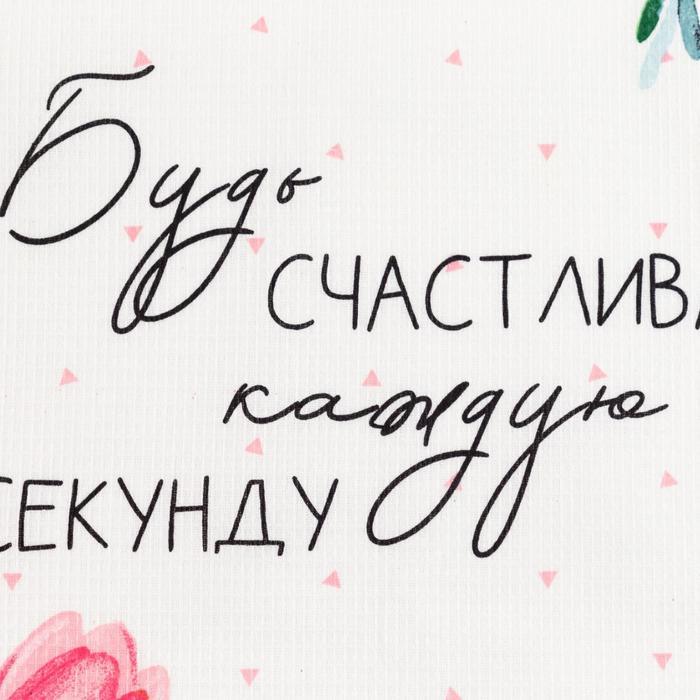 Будь
СЧАСТЛИВА
каждую
СЕКУНДУ